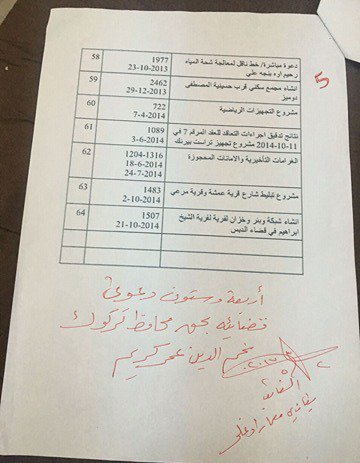 5
58
1977
23-10-2013
دعوة مباشرة/ خط ناقل لمعالجة شحة المياه
رحيم اره بنجه علي
59
2462
29-12-2013
انشاء مجمع سكني قرب حسينية المصطفى
دوميز
60
722
7-4-2014
مشروع التجهيزات الرياضية
61
1089
3-6-2014
نتائج تدقيق اجراءات التعاقد للعقد المرقم 7 في
11-10-2014 مشروع تجهيز تراست بيرنك
62
1204-1316
18-6-2014
24-7-2014
الغرامات التأخيرية والامانات المحجوزة
63
1483
2-10-2014
مشروع تبليط شارع قرية عمشة وقرية مرعي
64
1507
21-10-2014
انشاء شبكة وبئر وخزان لقرية لقرية الشيخ
ابراهيم في قضاء الدبس
أربعة وستون دعوى
قضائية بحق محافظ كركوك
نجم الدين عمر كريم